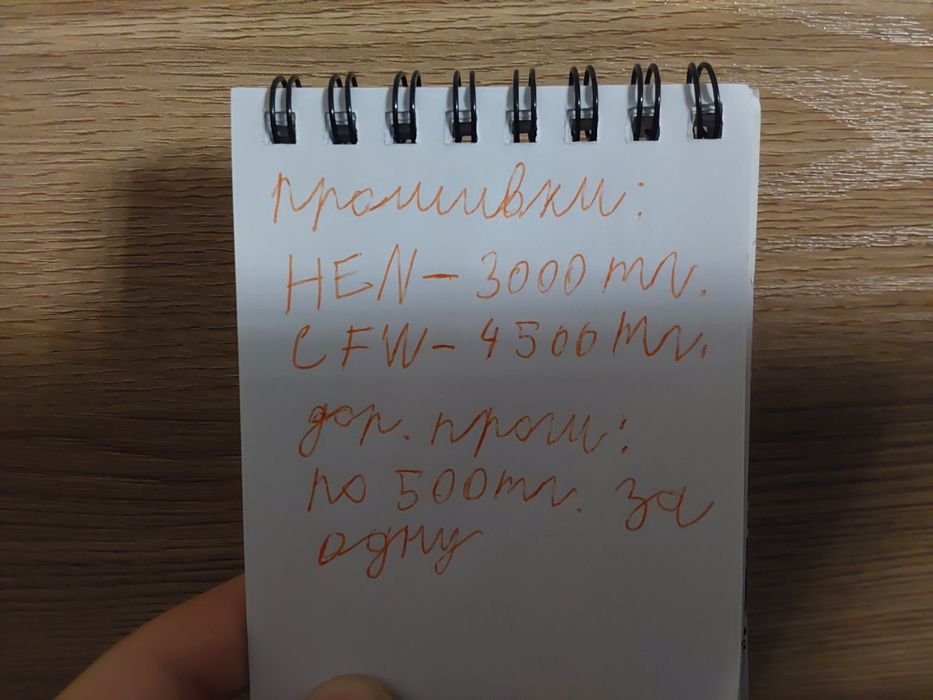 прошивки:
HEN - 3000 тг.
CFW - 4500 тг.
дор. прош:
по 500 тг. за
одну